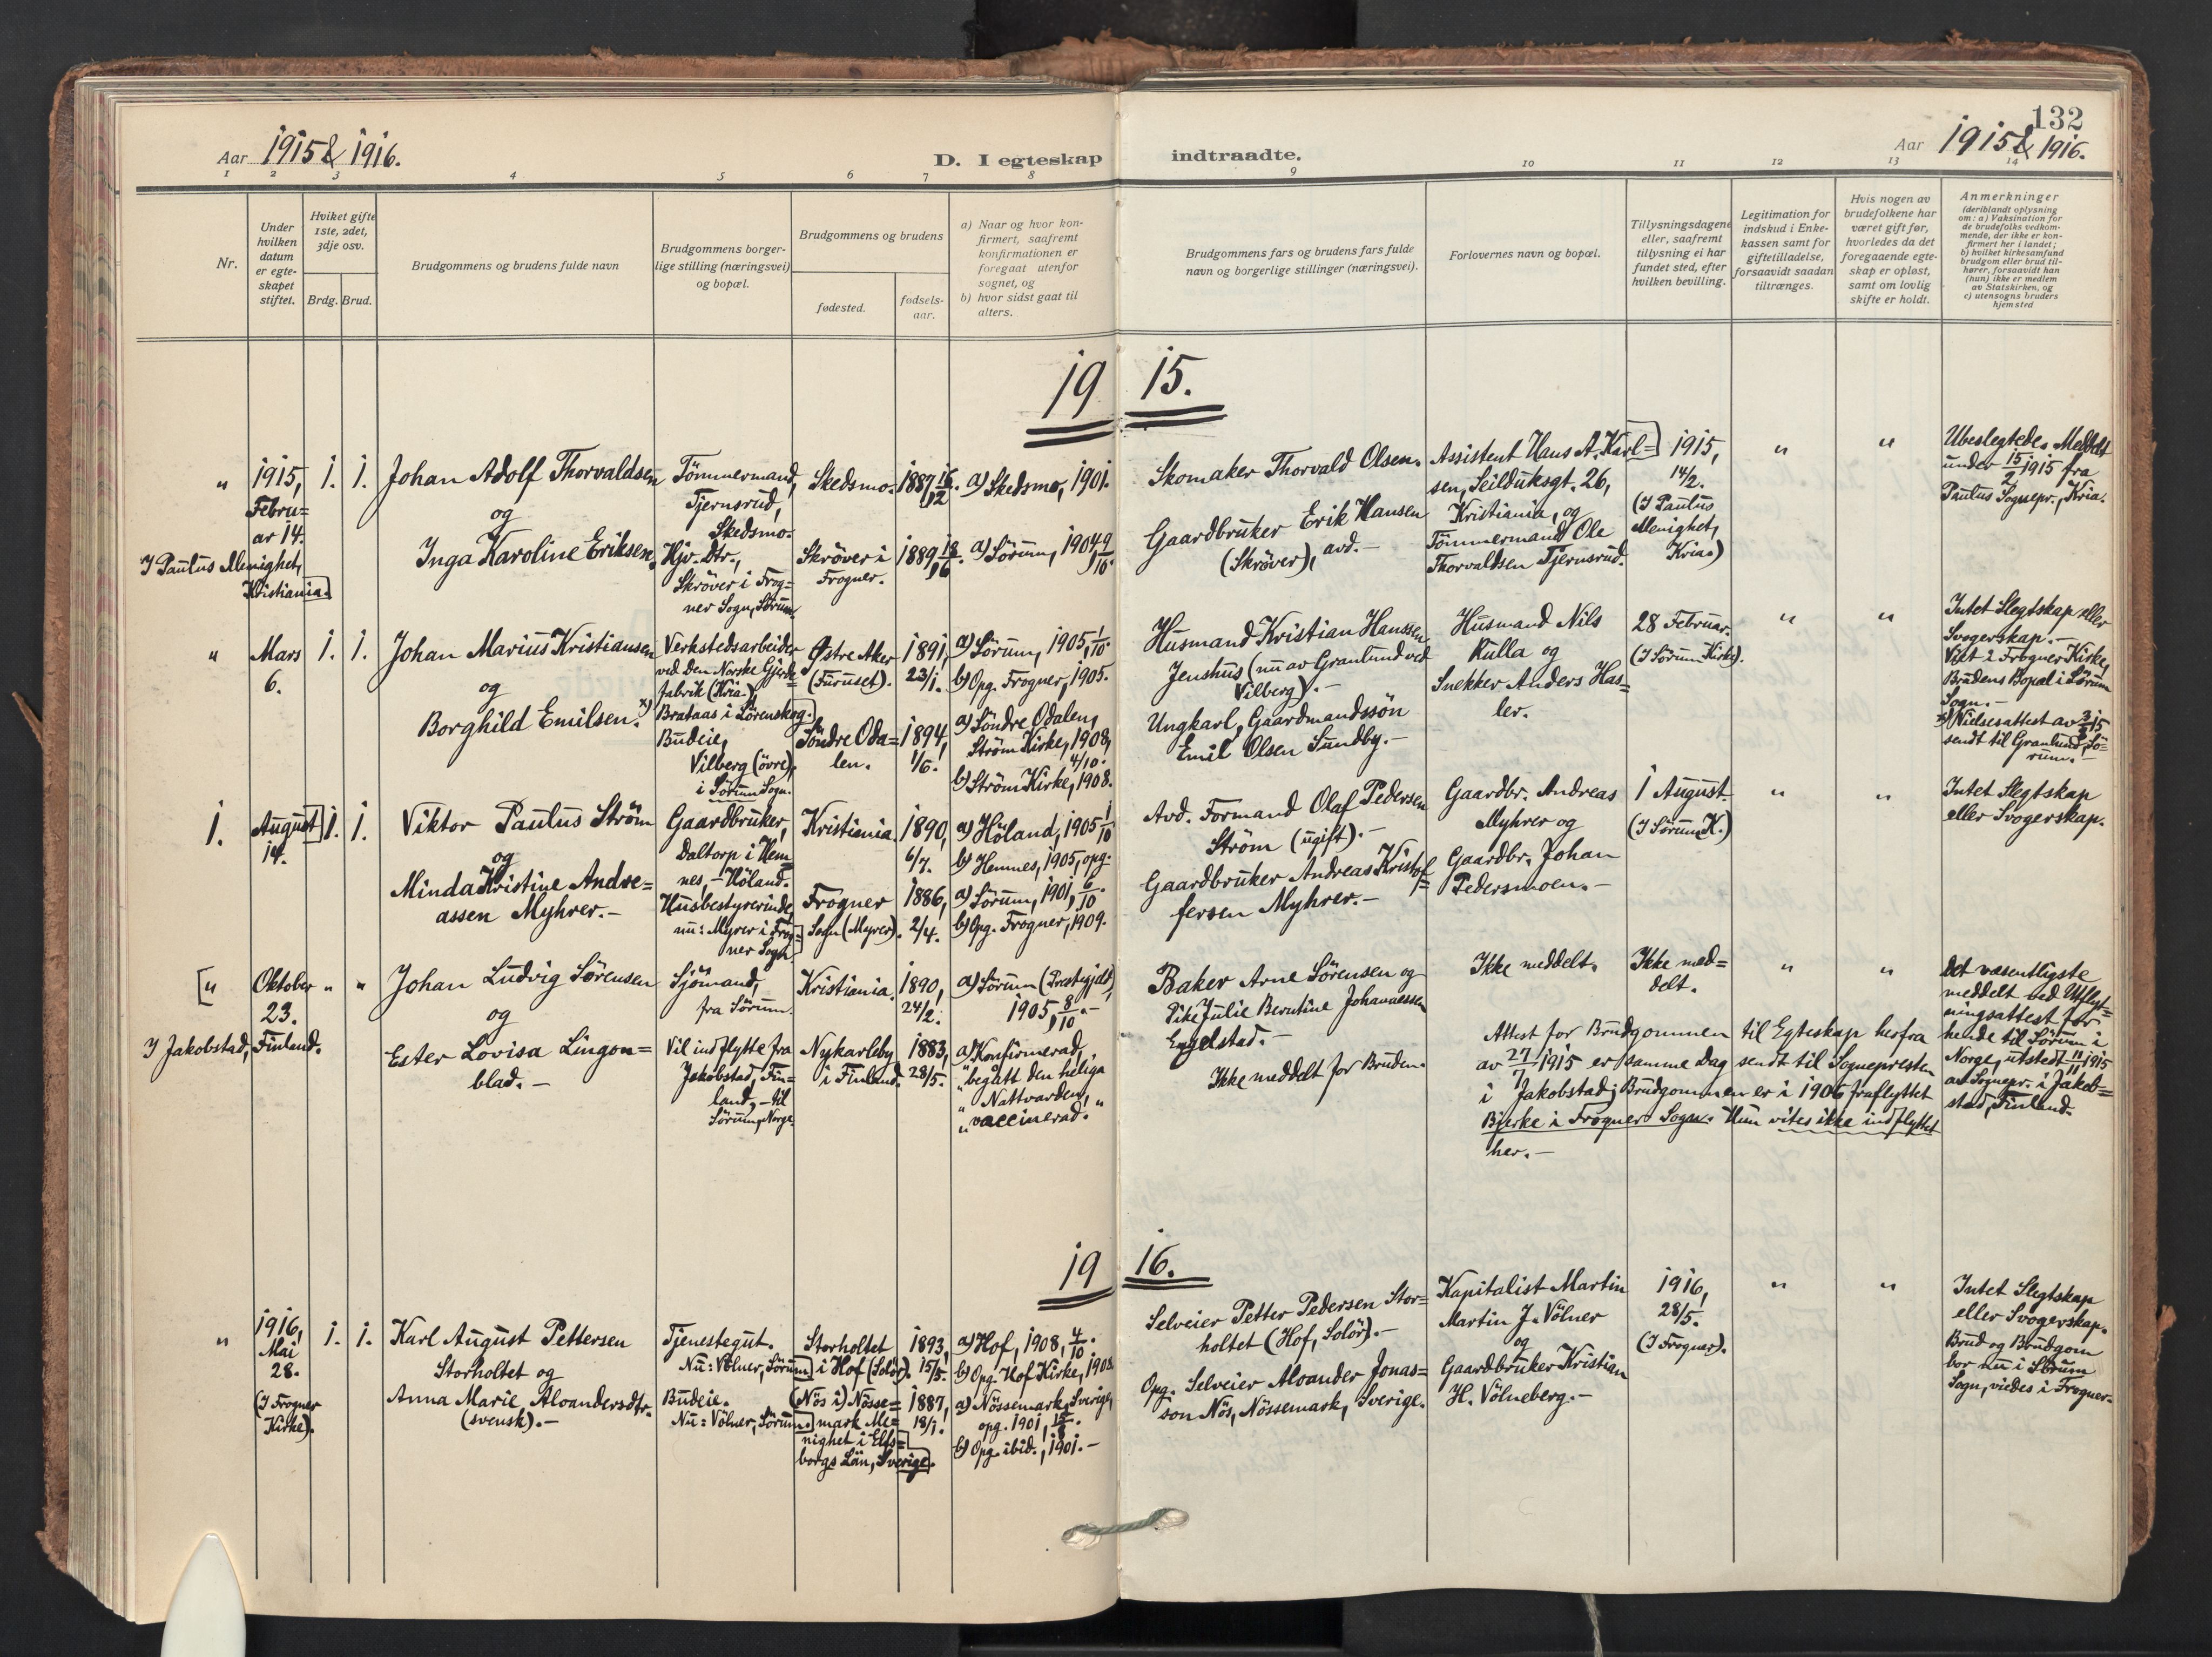 132
Aar 1915 & 1916.
D. I egteskap indtraadte.
Aar 1915 & 1916.
1 2 3 4 5 6 7 8 9 10 11 12 13 14
Nr.
Under
hvilken
datum
er egte-
skapet
stiftet.
Hviket gifte
1ste, 2det,
3dje osv.
Brdg. Brud.
Brudgommens og brudens fulde navn
Brudgommens borger-
lige stilling (næringsvei)
og bopæl.
Brudgommens og brudens
fødested.
fødsels-
aar.
a) Naar og hvor kon-
firmert, saafremt
konfirmationen er
foregaat utenfor
sognet, og
b) hvor sidst gaat til
alters.
Brudgommens fars og brudens fars fulde
navn og borgerlige stillinger (næringsvei).
Forlovernes navn og bopæl.
Tillysningsdagene
eller, saafremt
tillysning ei har
fundet sted, efter
hvilken bevilling.
Legitimation for
indskud i Enke-
kassen samt for
giftetilladelse,
forsaavidt saadan
tiltrænges.
Hvis nogen av
brudefolkene har
været gift før,
hvorledes da det
foregaaende egte-
skap er opløst,
samt om lovlig
skifte er holdt.
Anmerkninger
(deriblandt oplysning
om: a) Vaksination for
de brudefolks vedkom-
mende, der ikke er kon-
firmert her i landet;
b) hvilket kirkesamfund
brudgom eller brud til-
hører, forsaavidt han
(hun) ikke er medlem
av Statskirken, og
c) utensogns bruders
hjemsted
1915.
"
1915,
Febru=
ar 14.
I Paulus Menighet,
Kristiania.
1. 1.
Johan Adolf Thorvaldsen
og
Inga Karoline Eriksen.
Tömmermand,
Tjernsrud,
Skedsmo.
Hjv. Dtr.,
Skröver i Frog=
ner Sogn, Sörum.
Skedsmo.
Skröver i
Frogner.
1887, 16/12.
1889, 18/6.
a) Skedsmo, 1901.
a) Sörum, 1904, 9/10.
Skomaker Thorvald Olsen.
Gaardbruker Erik Hansen
(Skröver), avd. —
Assistent Hans A. Karl=
sen, Seilduksgt. 26,
Kristiania, og
Tömmermand Ole
Thorvaldsen Tjernsrud.
1915,
14/2.
(I Paulus
Menighet,
Kria.)
" "
Ubeslegtede. Meddelt
under 15/2 1915 fra
Paulus Sognepr., Kria.
"
Mars
6.
1. 1.
Johan Marius Kristiansen
og
Borghild Emilsen. x)
Verkstedsarbeider
ved Den Norske Gjærde=
fabrik (Kria),
Brataas i Lörenskog.
Budeie,
Vilberg (övre),
i Sörum Sogn.
Østre Aker
(Furuset).
Söndre Oda=
len.
1891,
23/1.
1894,
1/6.
a) Sörum, 1905, 1/10.
b) Opg. Frogner, 1905.
a) Söndre Odalen,
Ström Kirke, 1908,
4/10.
b) Ström Kirke, 1908.
Husmand Kristian Hanssen
Jenshus (nu av Granlund ved
Vilberg). —
Ungkarl, Gaardmandssön
Emil Olsen Sundby. —
Husmand Nils
Kulla og
Snekker Anders Has=
ler.
28 Februar.
(I Sörum Kirke).
" "
Intet Slegtskap eller
Svogerskap. —
Viet i Frogner Kirke,
Brudens Bopæl i Sörum
Sogn. —
x) Vielsesattest av 3/8 15
sendt til Granlund, Sö=
rum. —
1.
August
14.
1. 1.
Viktor Paulus Ström
og
Minda Kristine Andre=
assen Myhrer. —
Gaardbruker,
Daltorp i Hem=
nes, — Höland.
Husbestyrerinde,
nu: Myrer i Frog=
ner Sogn.
Kristiania.
Frogner
Sogn (Myrer).
1890,
6/7.
1886,
2/4.
a) Höland, 1905, 1/10
b) Hemnes, 1905, opg.
a) Sörum, 1901, 6/10.
b) Opg. Frogner, 1909.
Avd. Formand Olaf Pedersen
Ström (ugift). —
Gaardbruker Andreas Kristof=
fersen Myhrer. —
Gaardbr. Andreas
Myhrer og
Gaardbr. Johan
Pedersmoen. —
1 August.
(I Sörum K.)
" "
Intet Slegtskap
eller Svogerskap.
["
Oktober
23.
I Jakobstad, Finland.
" "
Johan Ludvig Sörensen
og
Ester Lovisa Lingon=
blad. —
Sjömand,
fra Sörum.
Vil indflytte fra
Jakobstad, Fin=
land, — til
Sörum, Norge.
Kristiania.
Nykarleby
i Finland.
1890,
24/2.
1883,
28/5.
a) Sörum (Prestegjeld),
1905, 8/10. —
a) Konfirmerad,
"begått den heliga
" Nattvarden,"
"vaccinerad."
Baker Arne Sörensen og
Pike Julie Berntine Johannessen
Engelstad. —
Ikke meddelt for Bruden.
Ikke meddelt.
Ikke med=
delt.
" "
Attest for Brudgommen til Egteskap herfra
av 27/7 1915 er samme Dag sendt til Sognepresten
i Jakobstad; Brudgommen er i 1906 fraflyttet
Bjerke i Frogner Sogn. Hun vites ikke indflyttet
her. —
Det væsentligste
meddelt ved Utflyt=
ningsattest for
hende til Sörum i
Norge, utstedt 11/11 1915
av Sognepr. i Jakob=
stad, Finland.
1916.
"
1916,
Mai
28.
(I Frogner
Kirke).
1. 1.
Karl August Pettersen
Storholtet og
Anna Marie Aloandersdtr.
(svensk). —
Tjenestegut.
Nu: Völner, Sörum.
Budeie.
Nu: Völner, Sörum.
Storholtet
i Hof (Solör).
(Nös i) Nösse=
mark Me=
nighet i Elfs=
borgs Län, Sverige.
1893,
15/5.
1887,
18/1.
a) Hof, 1908, 4/10.
b) Opg. Hof Kirke, 1908.
a) Nössemark, Sverige,
opg. 1901,
b) Opg. ibid., 1901. —
Selveier Petter Pedersen Stor=
holtet (Hof, Solör). —
Opg. Selveier Aloander Jonas=
son Nös, Nössemark, Sverige.
Kapitalist Martin
Martin J. Völner
og
Gaardbruker Kristian
H. Völneberg. —
1916,
28/5.
(I Frogner).
" "
Intet Slegtskap
eller Svogerskap.
Brud og Brudgom
bor nu i Sörum
Sogn, viedes i Frogner.